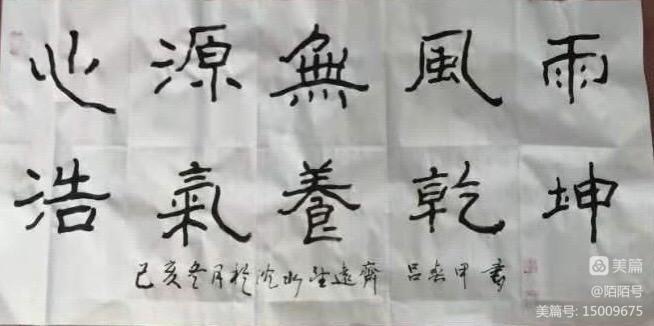 心源無風雨
浩氣養乾坤
己亥冬月於水遠齊 吕甲書
美篇
@陌陌号
美篇号: 15009675